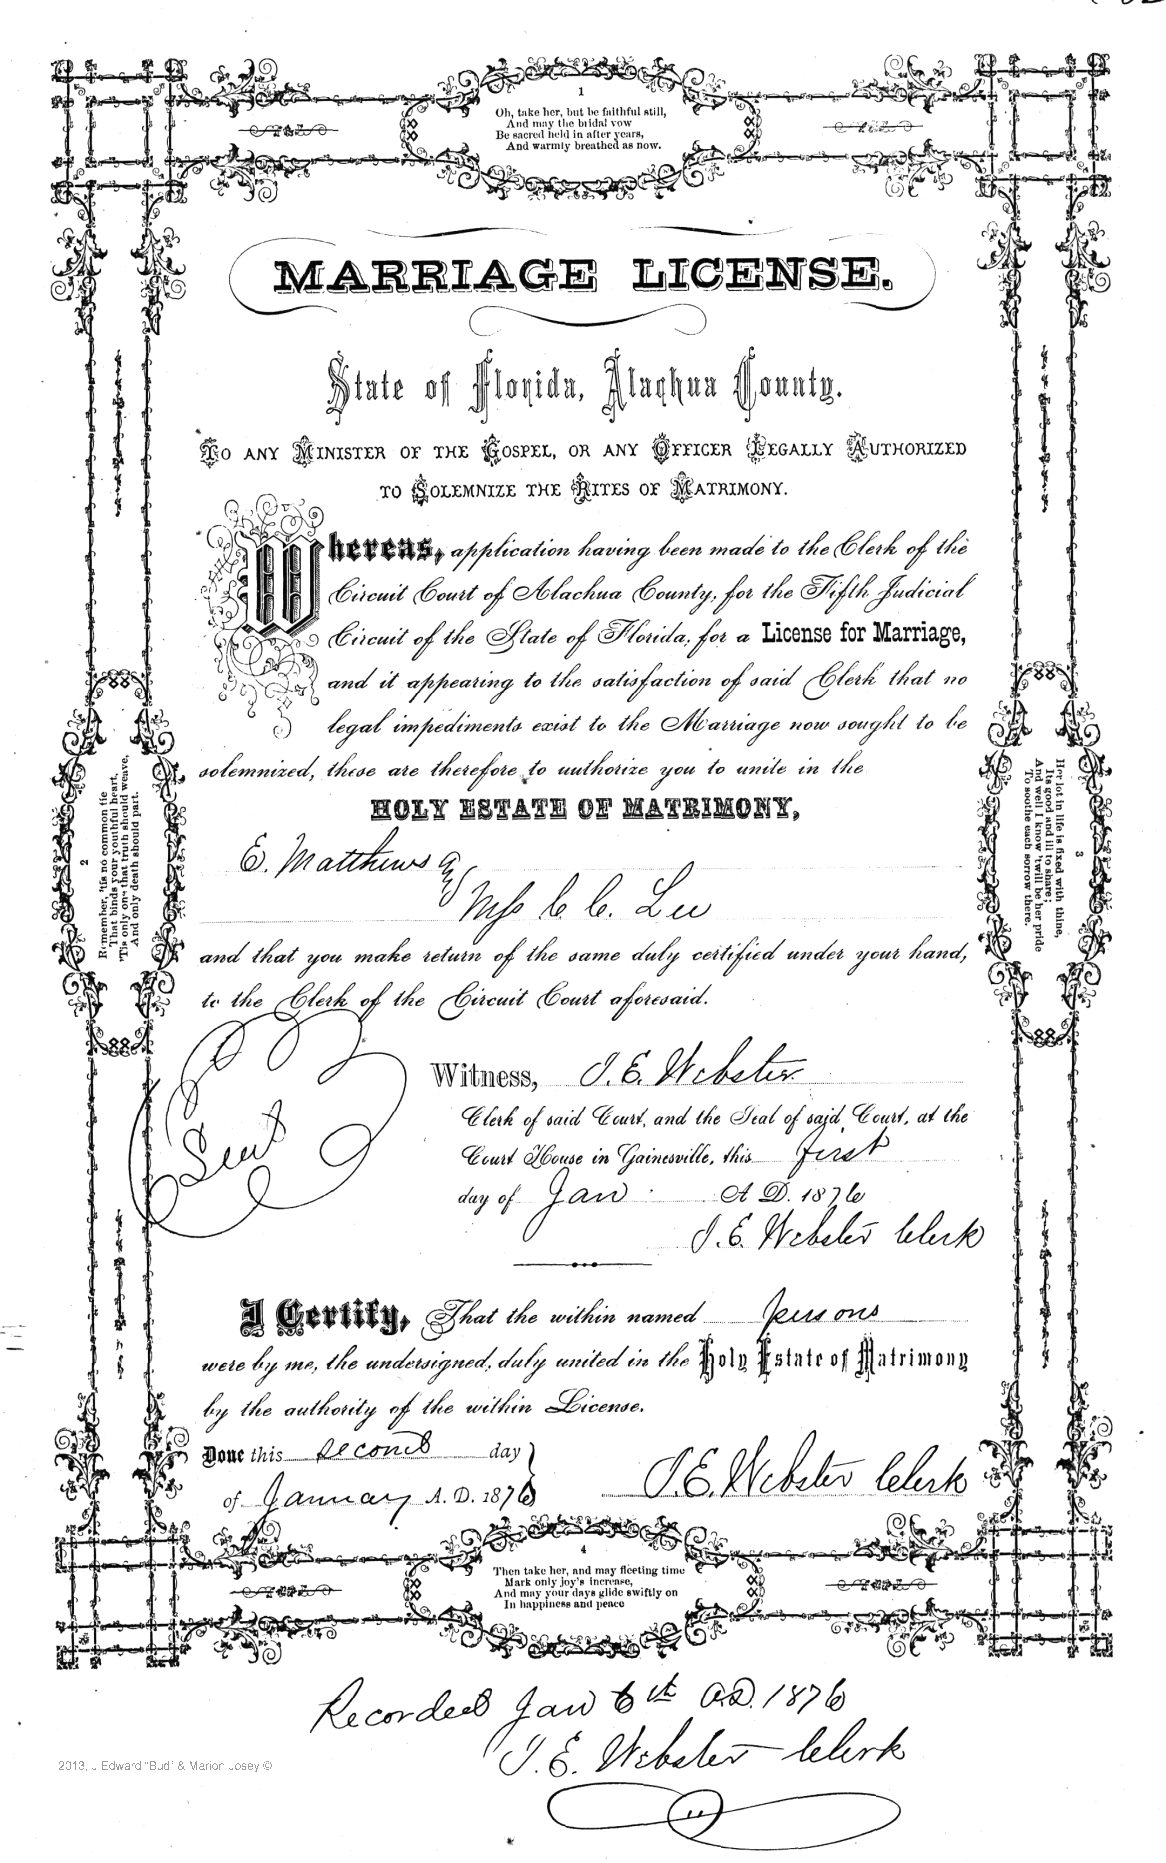 1
Oh, take her, but be faithful still,
And may the bridal vow
Be sacred held in after years,
And warmly breathed as now.
MARRIAGE LICENSE.
State of Florida, Alachua County.
TO ANY MINISTER OF THE GOSPEL, OR ANY OFFICER LEGALLY AUTHORIZED
TO SOLEMNIZE THE RITES OF MATRIMONY.
Whereas, application having been made to the Clerk of the
Circuit Court of Alachua County, for the Fifth Judicial
Circuit of the State of Florida, for a License for Marriage,
and it appearing to the satisfaction of said Clerk that no
legal impediments exist to the Marriage now sought to be
solemnized, these are therefore to authorize you to unite in the
HOLY ESTATE OF MATRIMONY,
E. Matthews and
Miss C. C. Lee
and that you make return of the same duly certified under your hand,
to the Clerk of the Circuit Court aforesaid.
2
Remember, 'tis no common tie
That binds your youthful heart,
'Tis only one that truth should weave,
And only death should part.
3
Her lot in life is fixed with thine,
Its good and ill to share;
And well I know 'twill be her pride
To soothe each sorrow there.
Seal
Witness, J. E. Webster
Clerk of said Court, and the Seal of said Court, at the
Court House in Gainesville, this first
day of Jan A. D. 1876
J. E. Webster Clerk
I Certify, That the within named persons
were by me, the undersigned, duly united in the Holy Estate of Matrimony
by the authority of the within License.
Done this second day
of January A. D. 1876
J. E. Webster Clerk
4
Then take her, and may fleeting time
Mark only joy's increase,
And may your days glide swiftly on
In happiness and peace
Recorded Jan 6th A.D. 1876
J. E. Webster Clerk
2013, J Edward "Bud" & Marion Josey ©